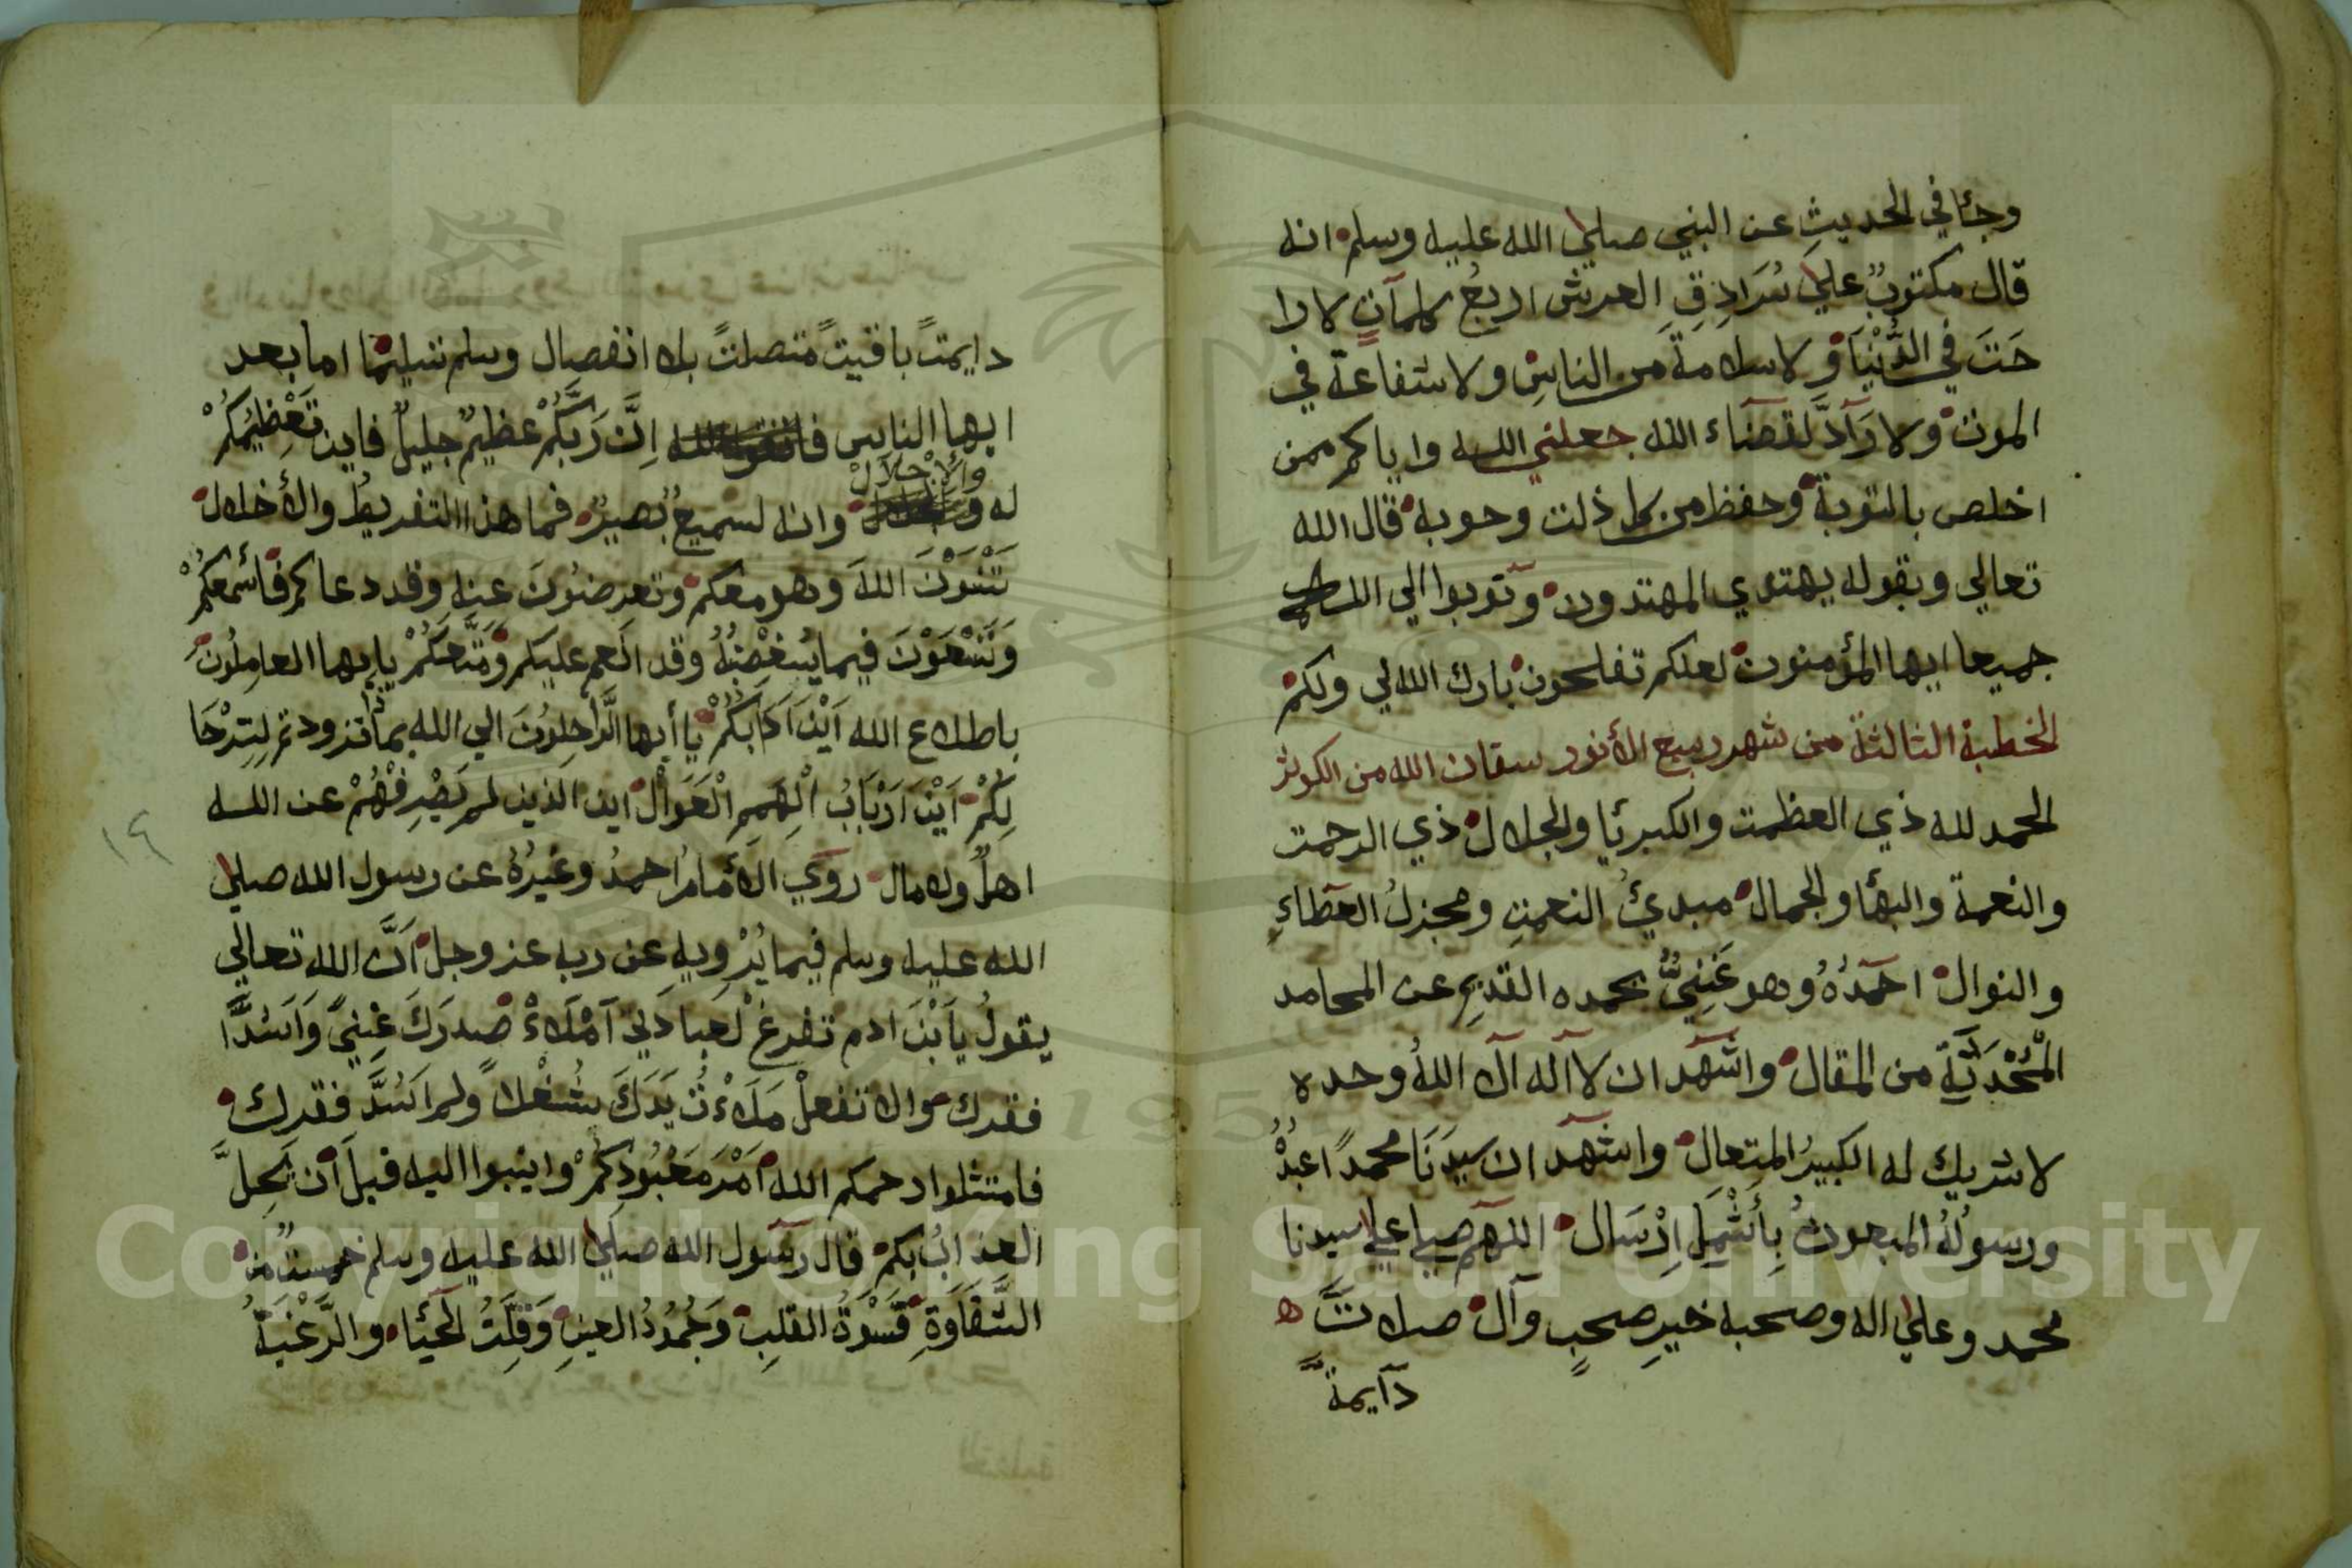 وجئا في الحديثِ عن النبي صلي الله عليه وسلم انه
قال مكتوبٌ علي سُرَادِقِ العرش اربعُ كلمآتٍ لا را
حَتَ في الدُّنْيَا وٓلا سلامةَ من الناسِ ولا شفاعةَ في
الموت ولا رَآدَّ لقضآء الله جعلني الله واياكم ممن
اخلص بالتوبة وحفظ من كل ذلت وحوبه قال الله
تعالي وبقوله يهتدي المهتدون وتوبوا الي الله
جميعا ايها المؤمنون لعلكم تفلحون بارك الله لي ولكم
الخطبة الثالثة من شهر ربيع الأنور سقان الله من الكوثر
الحمد لله ذي العظمت والكبرئا والجلال ذي الرحمت
والنعمة والبهٔا والجمال مبدئُ النعمتِ ومجزلُ العطاءِ
والنوال احمَدُهُ وهو غَنِيٌّ بحمده القديمِ عن المحامد
الْمُحْدَثَةِ من المقال واشهد ان لآ اله الآ اللهُ وحده
لا شريك له الكبيرُ المتعال واشهد ان سيدَنَا محمدًا عبدُهُ
ورسولُهُ المبعوثُ بِأَشْمَلِ اِرْسَال اللهم صلي علي سيدنا
محمد وعلي اله وصحبه خيرِ صحبٍ وآل صلاتً ه
دآيمةً
دايمتً باقيتً متصلتً بلا انفصال وسلم تسليمًا اما بعد
ايها الناس اِنَّ رَبَّكُمْ عظيمٌ جليلٌ فاين تَعْظِيمُكُمْ
والإجْلَالْ
له وانه لسميعٌ بصيرٌ فما هذا التفريطُ والأخلال
تَنْسَوْنَ اللهَ وهو معكم وتعرضُونَ عنه وقد دعاكم فأسْمَعَكُمْ
وَتَسْعَوْنَ فيما يُبغضُهُ وقد انعم عليكم ومَتَّعَكُمْ يايها العامِلُونَ
باطلاع الله اَيْنَ اَدَابَكُمْ يا أيها الرَّاحِلُونَ الي الله بماذا تزودتم لِتِرْحَا
لِكُمْ اَيْنَ اَرْبَابُ الْهِمَمِ الْعَوَالْ اين الذين لم يَصْرِفْهُمْ عن الله
اهلٌ ولا مال رَوَي الأمامُ احمدُ وغيرُهُ عن رسول الله صلي
الله عليه وسلم فيما يُرْوِيهِ عن ربه عز وجل اَنَّ الله تعالي
يقولُ يا اَبْنَ ادم تفرغْ لعبادَتي آمْلَاءْ صدرَكَ غِنيً وَاَسُدَّ
فقرك والا تفعلْ مَلَاءْتُ يَدَكَ شُغْلاً ولم اَسُدَّ فقرك
فامتثلوا رحمكم الله اَمْرَ مَعْبُودِكُمْ وانيبوا اليه قبلَ اَن يَحِلَّ
العذابُ بكم قال رسول الله صلي الله عليه وسلم خمسةٌ من
الشَّقَاوَةِ قَسْوَةُ القلبِ وَجُمُودُ العينِ وَقِلَّتُ الحئَا والرَّغْبَةُ
١٩